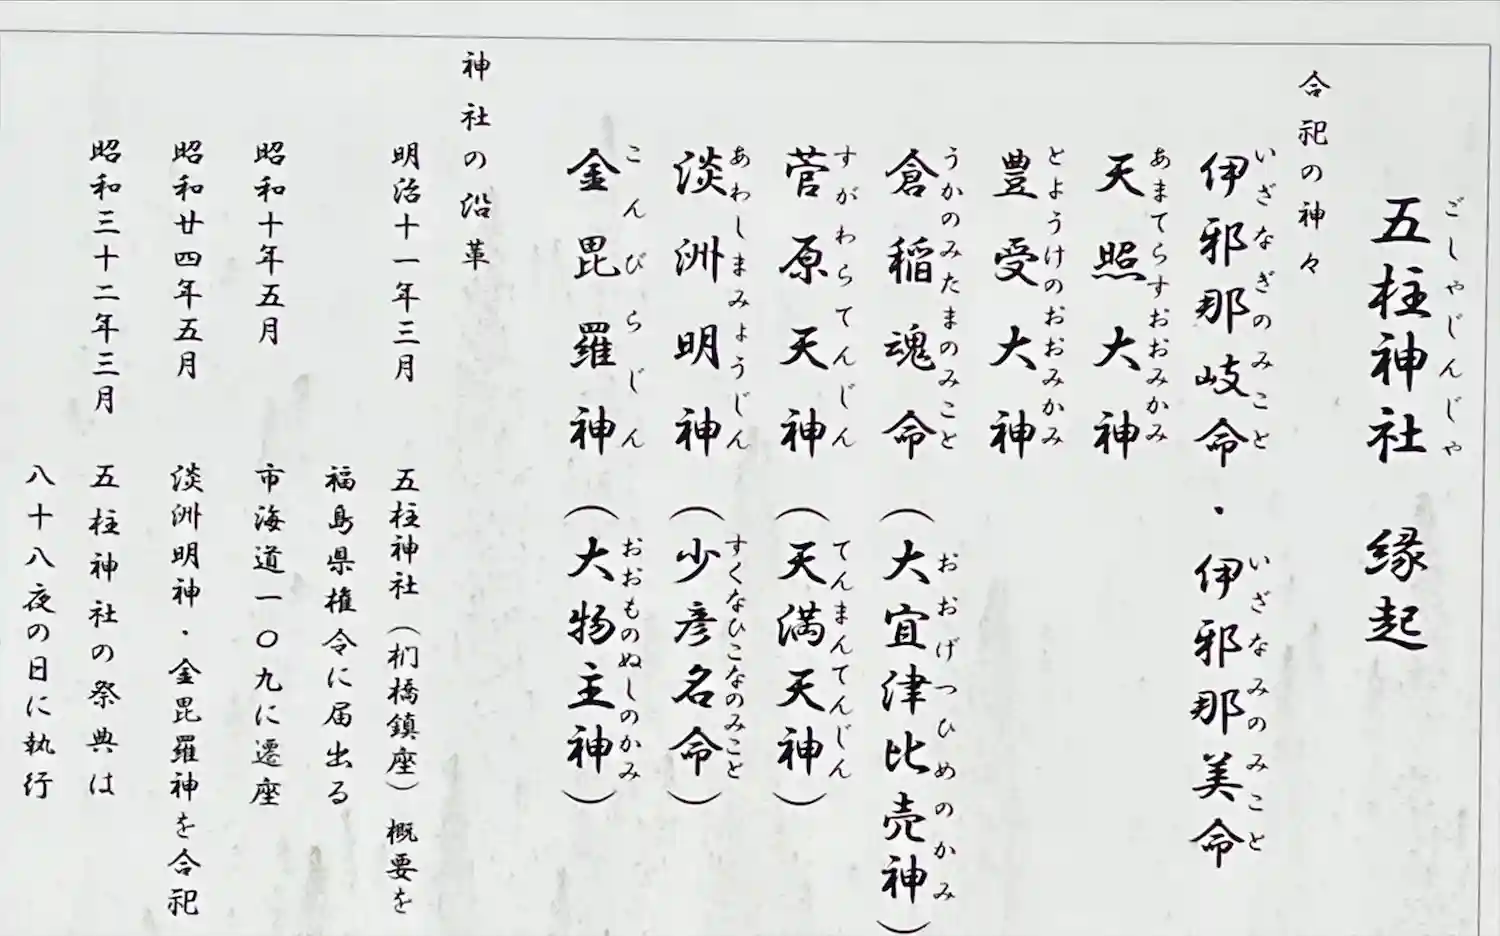 五柱神社 縁起
ごしゃじんじゃ
合祀の神々
伊邪那岐命・伊邪那美命
いざなぎのみこと いざなみのみこと
天照大神
あまてらすおおみかみ
豊受大神
とようけのおおみかみ
倉稲魂命(大宜津比売神)
うかのみたまのみこと おおげつひめのかみ
菅原天神(天満天神)
すがわらてんじん てんまんてんじん
淡洲明神(少彦名命)
あわしまみょうじん すくなひこなのみこと
金毘羅神(大物主神)
こんぴらじん おおものぬしのかみ
神社の沿革
明治十一年三月 五柱神社(朳橋鎮座)概要を
福島県権令に届出る
昭和十年五月 市海道一〇九に遷座
昭和廿四年五月 淡洲明神・金毘羅神を合祀
昭和三十二年三月 五柱神社の祭典は
八十八夜の日に執行